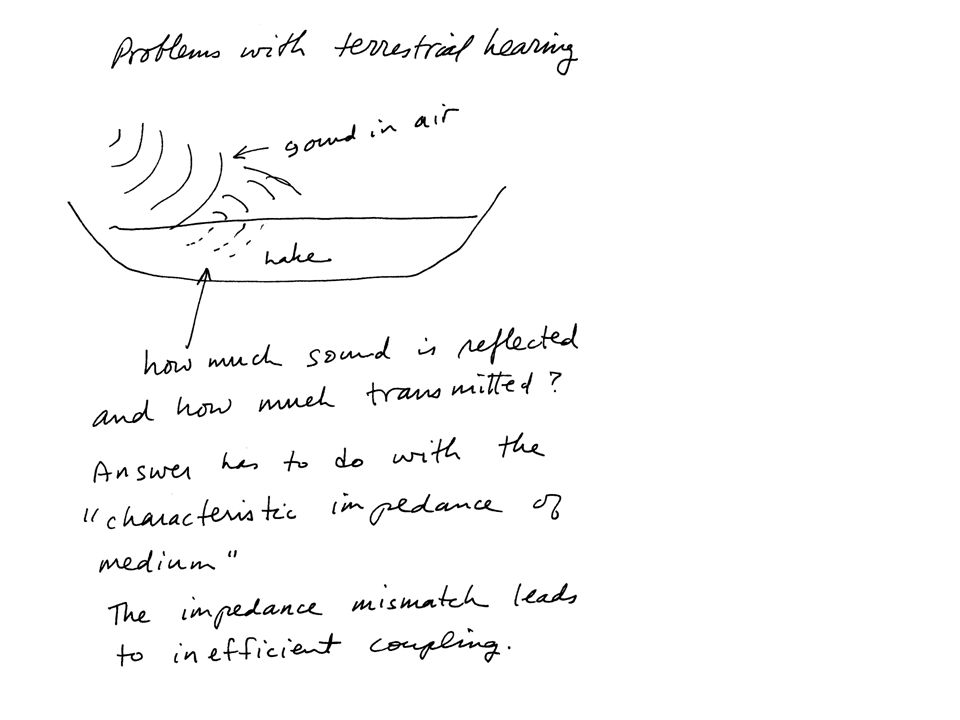 Problems with terrestrial hearing
sound in air
Lake
how much sound is reflected
and how much transmitted?
Answer has to do with the
"characteristic impedance of
medium"
The impedance mismatch leads
to inefficient coupling.